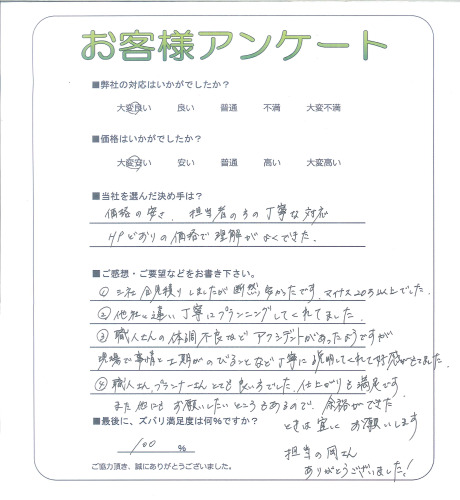 お客様アンケート
■弊社の対応はいかがでしたか？
大変良い　良い　普通　不満　大変不満
■価格はいかがでしたか？
大変安い　安い　普通　高い　大変高い
■当社を選んだ決め手は？
価格の安さ、担当者の方の丁寧な対応
HPどおりの価格で理解がよくできた。
■ご感想・ご要望などをお書き下さい。
① 三社見積りしましたが断然安かったです。マイナス20万以上でした。
② 他社と違い丁寧にプランニングしてくれてました。
③ 職人さんの体調不良など アクシデントがあったようですが
現場で事情と工期がのびることなど丁寧に説明してくれて好感がもてました。
④ 職人さん、プランナーさんとても良い方でした。仕上がりも満足です。
また他にもお願いしたいところもあるので、余裕ができた
ときは宜しくお願いします
■最後に、ズバリ満足度は何％ですか？
100 ％
担当の岡さん
ありがとうございました！
ご協力頂き、誠にありがとうございました。